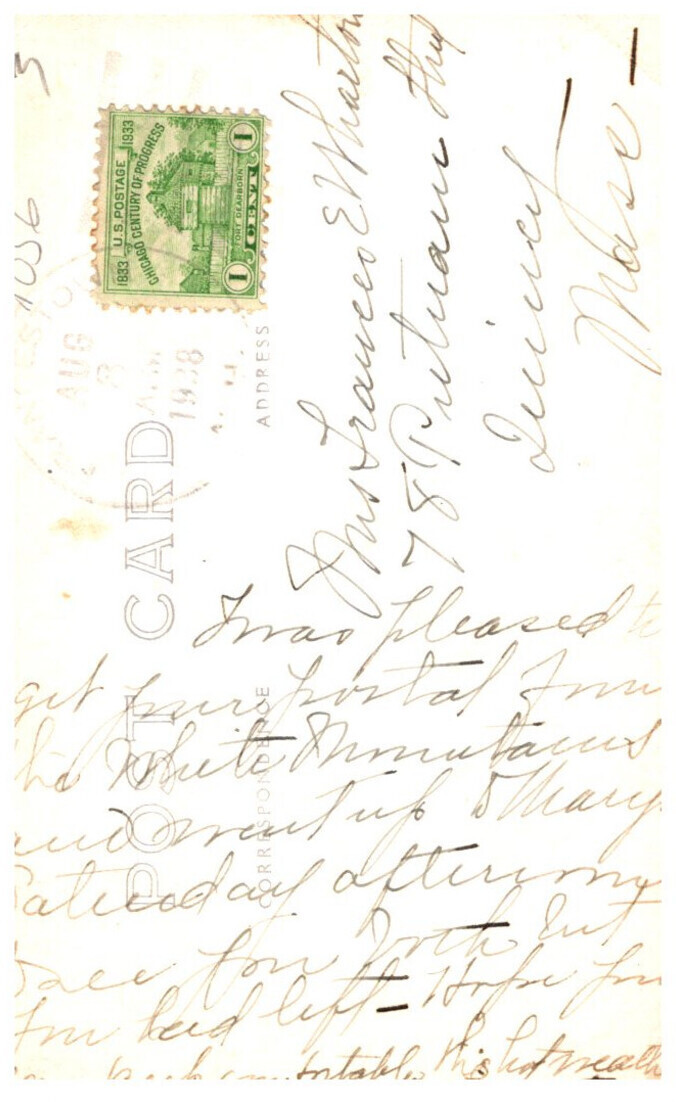 1036
U.S. POSTAGE
1833 1933
CHICAGO CENTURY OF PROGRESS
FORT DEARBORN
1 CENT 1
AUG
8
1938
POST CARD
ADDRESS
CORRESPONDENCE
Mrs Frances E Wharton
78 Putnam
Quincy
Mass
I was pleased to
get your postal from
the White Mountains
and went up to Mary
Saturday afternoon
see you both but
you had left - Hope you
comfortable this hot weath